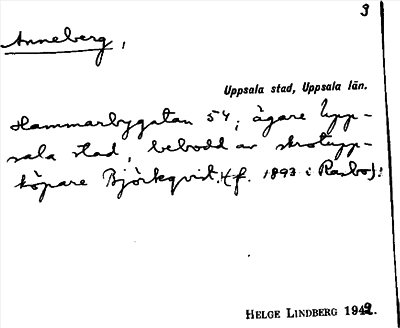 3
Anneberg,
Uppsala stad, Uppsala län.
Hammarbygatan 54, ägare Upp-
sala stad, bebodd av skrotupp-
köpare Björkqvist. (f. 1893 i Rasbo):
HELGE LINDBERG 1942.